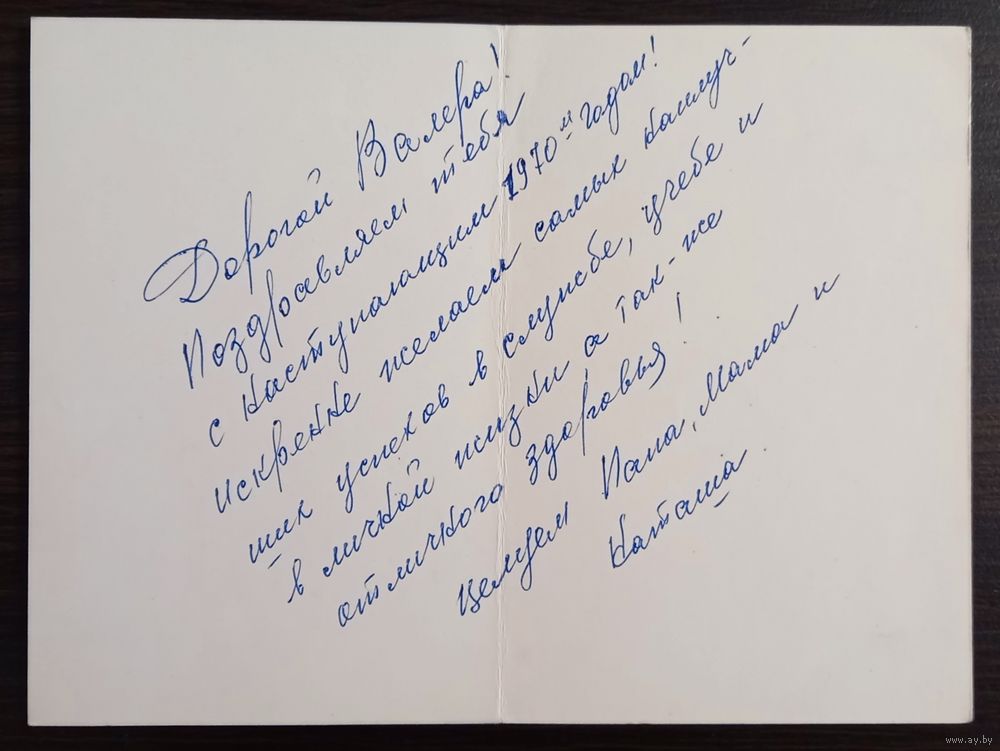 Дорогой Валера!
Поздравляем тебя
с наступающим 1970-м годом!
искренне желаем самых наилуч-
ших успехов в службе, учебе и
в личной жизни а так-же
отличного здоровья!
Целуем Папа, Мама и
Наташа.
www.ay.by